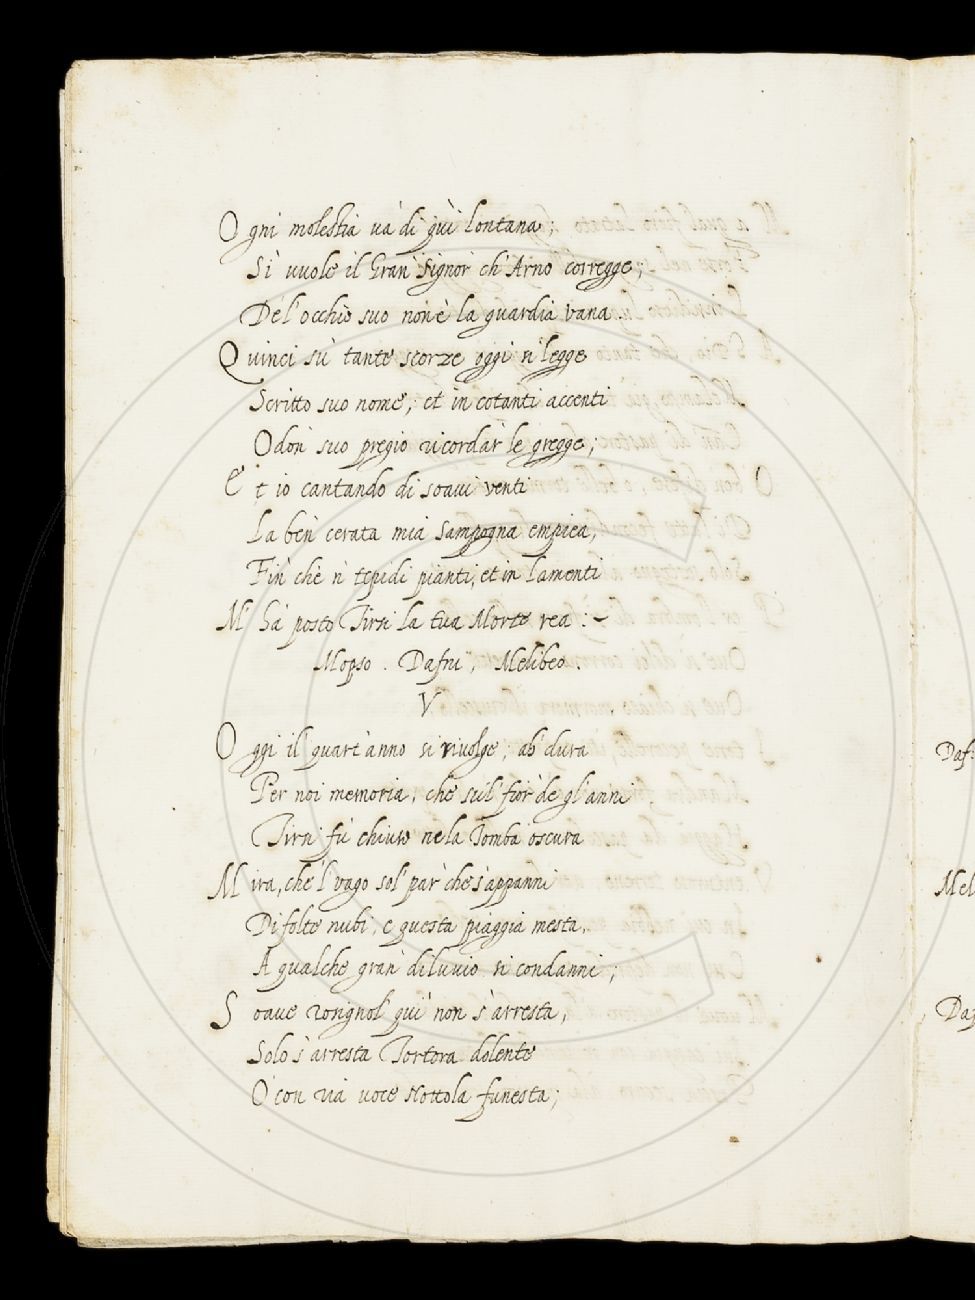 Ogni molestia và di quì lontana;
Sì vuole il Gran Signor ch'Arno corregge;
Del'occhio suo non è la guardia vana.
Quinci sù tante scorze oggi si legge
Scritto suo nome, et in cotanti accenti
Odon suo pregio ricordar le gregge;
Et io cantando di soavi venti
La ben cerata mia Sampogna empiea,
Fin che 'n tepidi pianti, et in lamenti
M'hà posto Tirsi la tua Morte rea :~
Mopso. Dafni, Melibeo.
V
Oggi il quart'anno si rivolge, ab dura
Per noi memoria, che sul' fior de gl'anni
Tirsi fù chiuso ne la Tomba oscura
Mira, che 'l vago sol' par che s'appanni
Di folte nubi, e questa piaggia mesta,
A qualche gran diluvio si condanni;
Soave rosignol quì non s'arresta,
Solo s'arresta Tortora dolente
O con ria voce Nottola funesta;
Daf
Mel
Daf